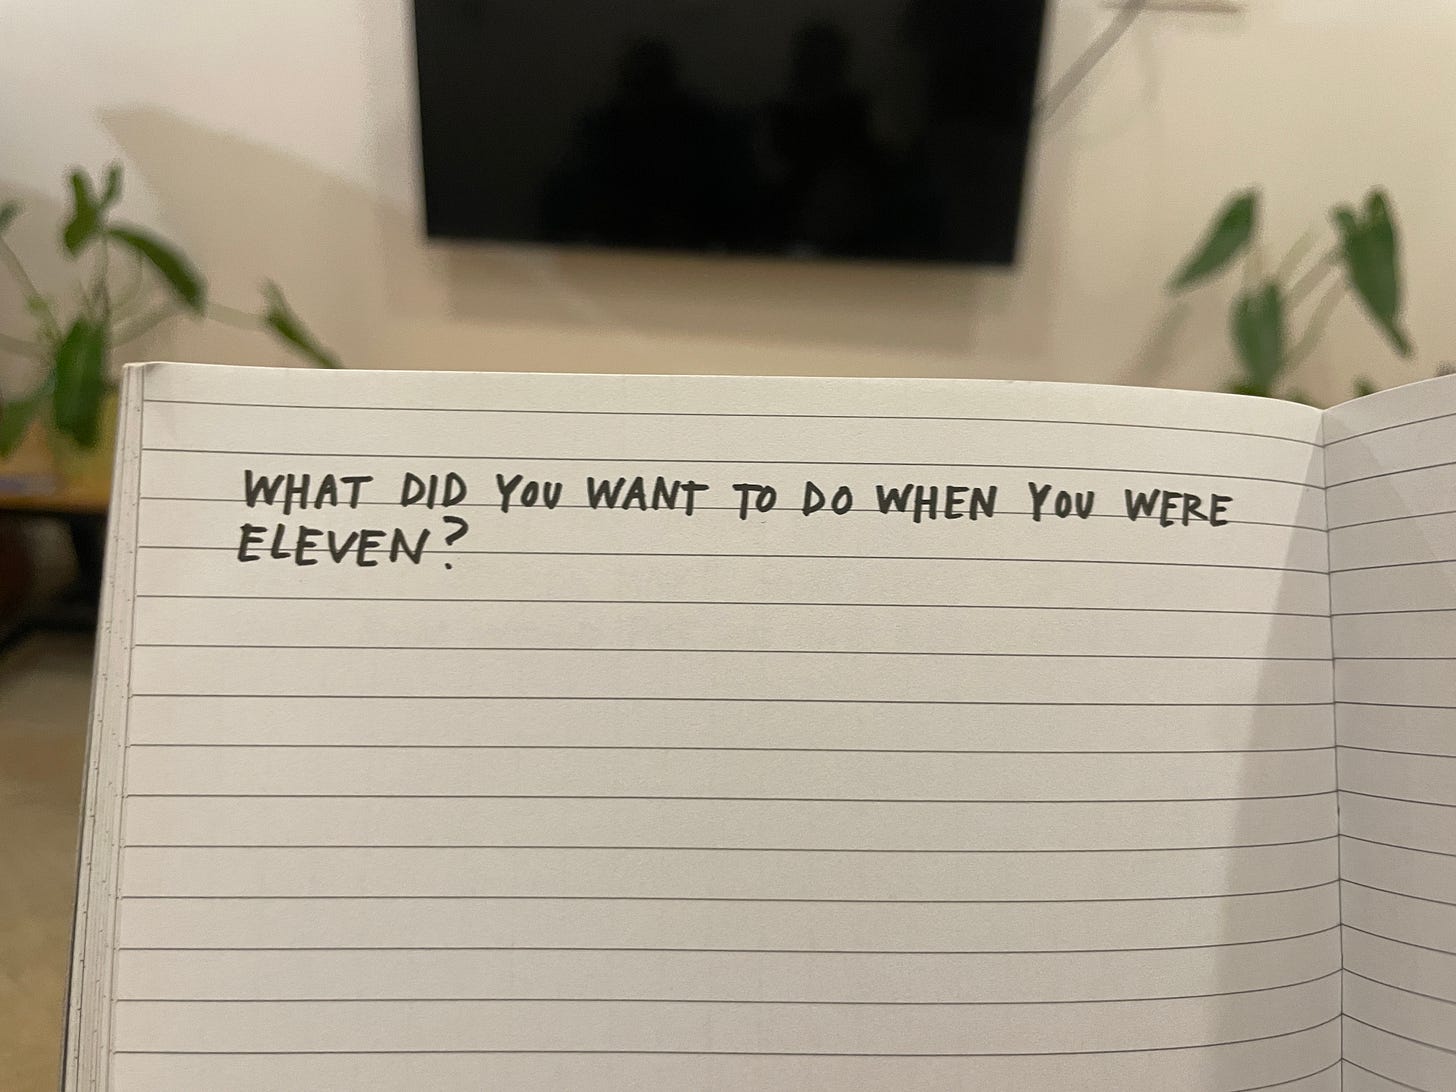 WHAT DID YOU WANT TO DO WHEN YOU WERE
ELEVEN?